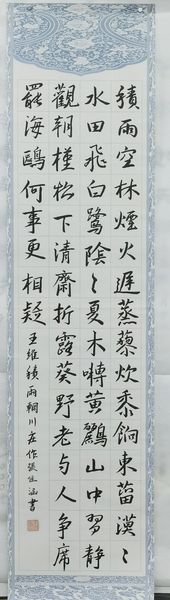 積雨空林煙火遲蒸藜炊黍餉東菑漠〻
水田飛白鷺陰〻夏木囀黃鸝山中習靜
觀朝槿松下清齋折露葵野老与人争席
罷海鷗何事更相疑
王維積雨輞川庄作張佳涵書